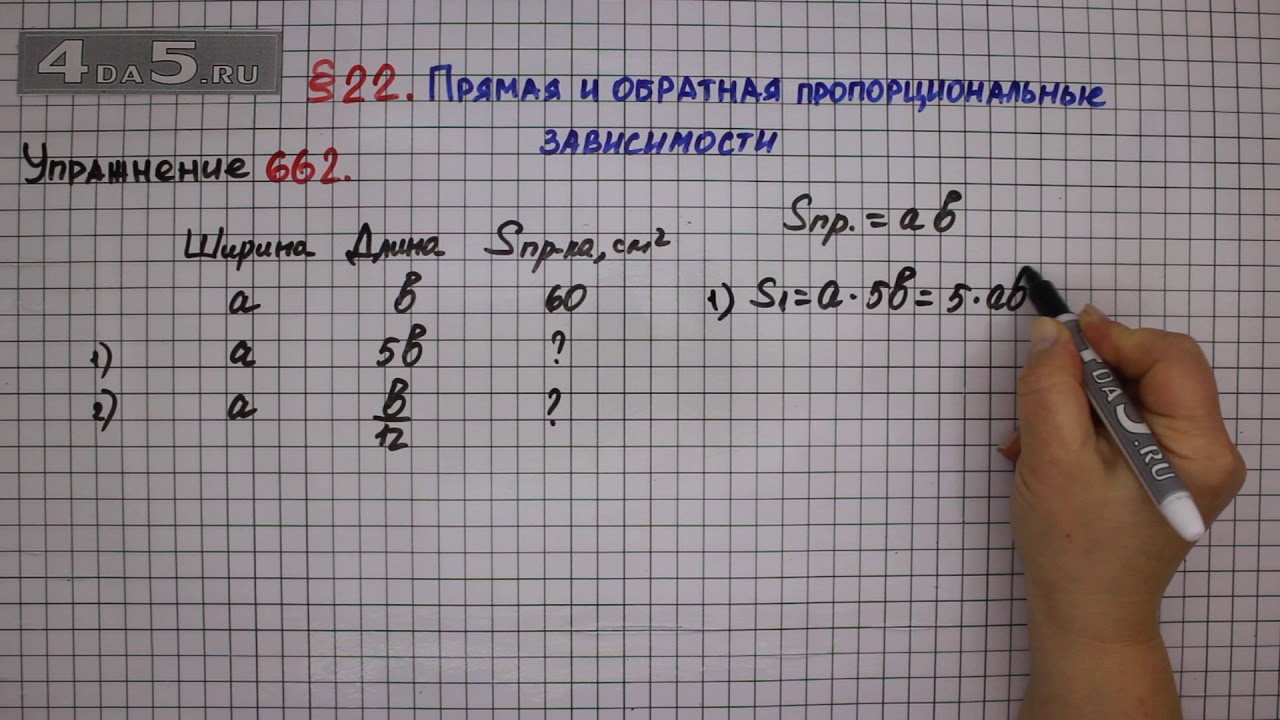 4DA5.RU
§22. Прямая и обратная пропорциональные
зависимости
Упражнение 662.
Ширина Длина Sпр-ка, см²
a b 60
1) a 5b ?
2) a b/12 ?
Sпр. = a b
1) S₁ = a · 5b = 5 · ab
DA5.RU